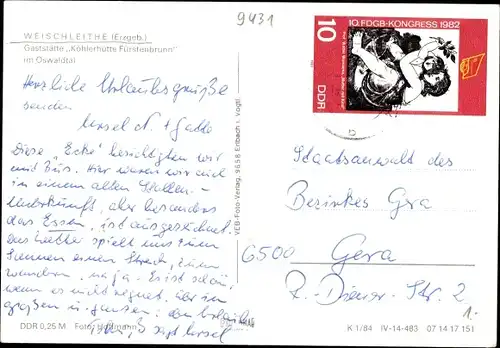 9431
WEISCHLEITHE (Erzgeb.)
Gaststätte „Köhlerhütte Fürstenbrunn"
im Oswaldtal
10
10. FDGB-KONGRESS 1982
DDR
Herzliche Urlaubsgrüße
senden
Ursel N. + Gatte
Diese „Ecke" besichtigten wir
mit Bus. Hier waren wir mal
in einem alten
Unterkunft, aber besonders
das Essen, ist ausgezeichnet.
Das Wetter spielt uns zum
einen Streich, zum
wandern, na ja. Es ist schön,
wenn es nicht regnet, aber im
großen u. ganzen: den Urlaub
sagt Ursel
VEB-Foto-Verlag, 9658 Erlbach i. Vogtl.
Staatsanwalt des
Bezirkes Gera
6500 Gera
R.-Diener-Str. 2
1.-
DDR 0,25 M Foto: Hoffmann
K 1/84 IV-14-483 07 14 17 151